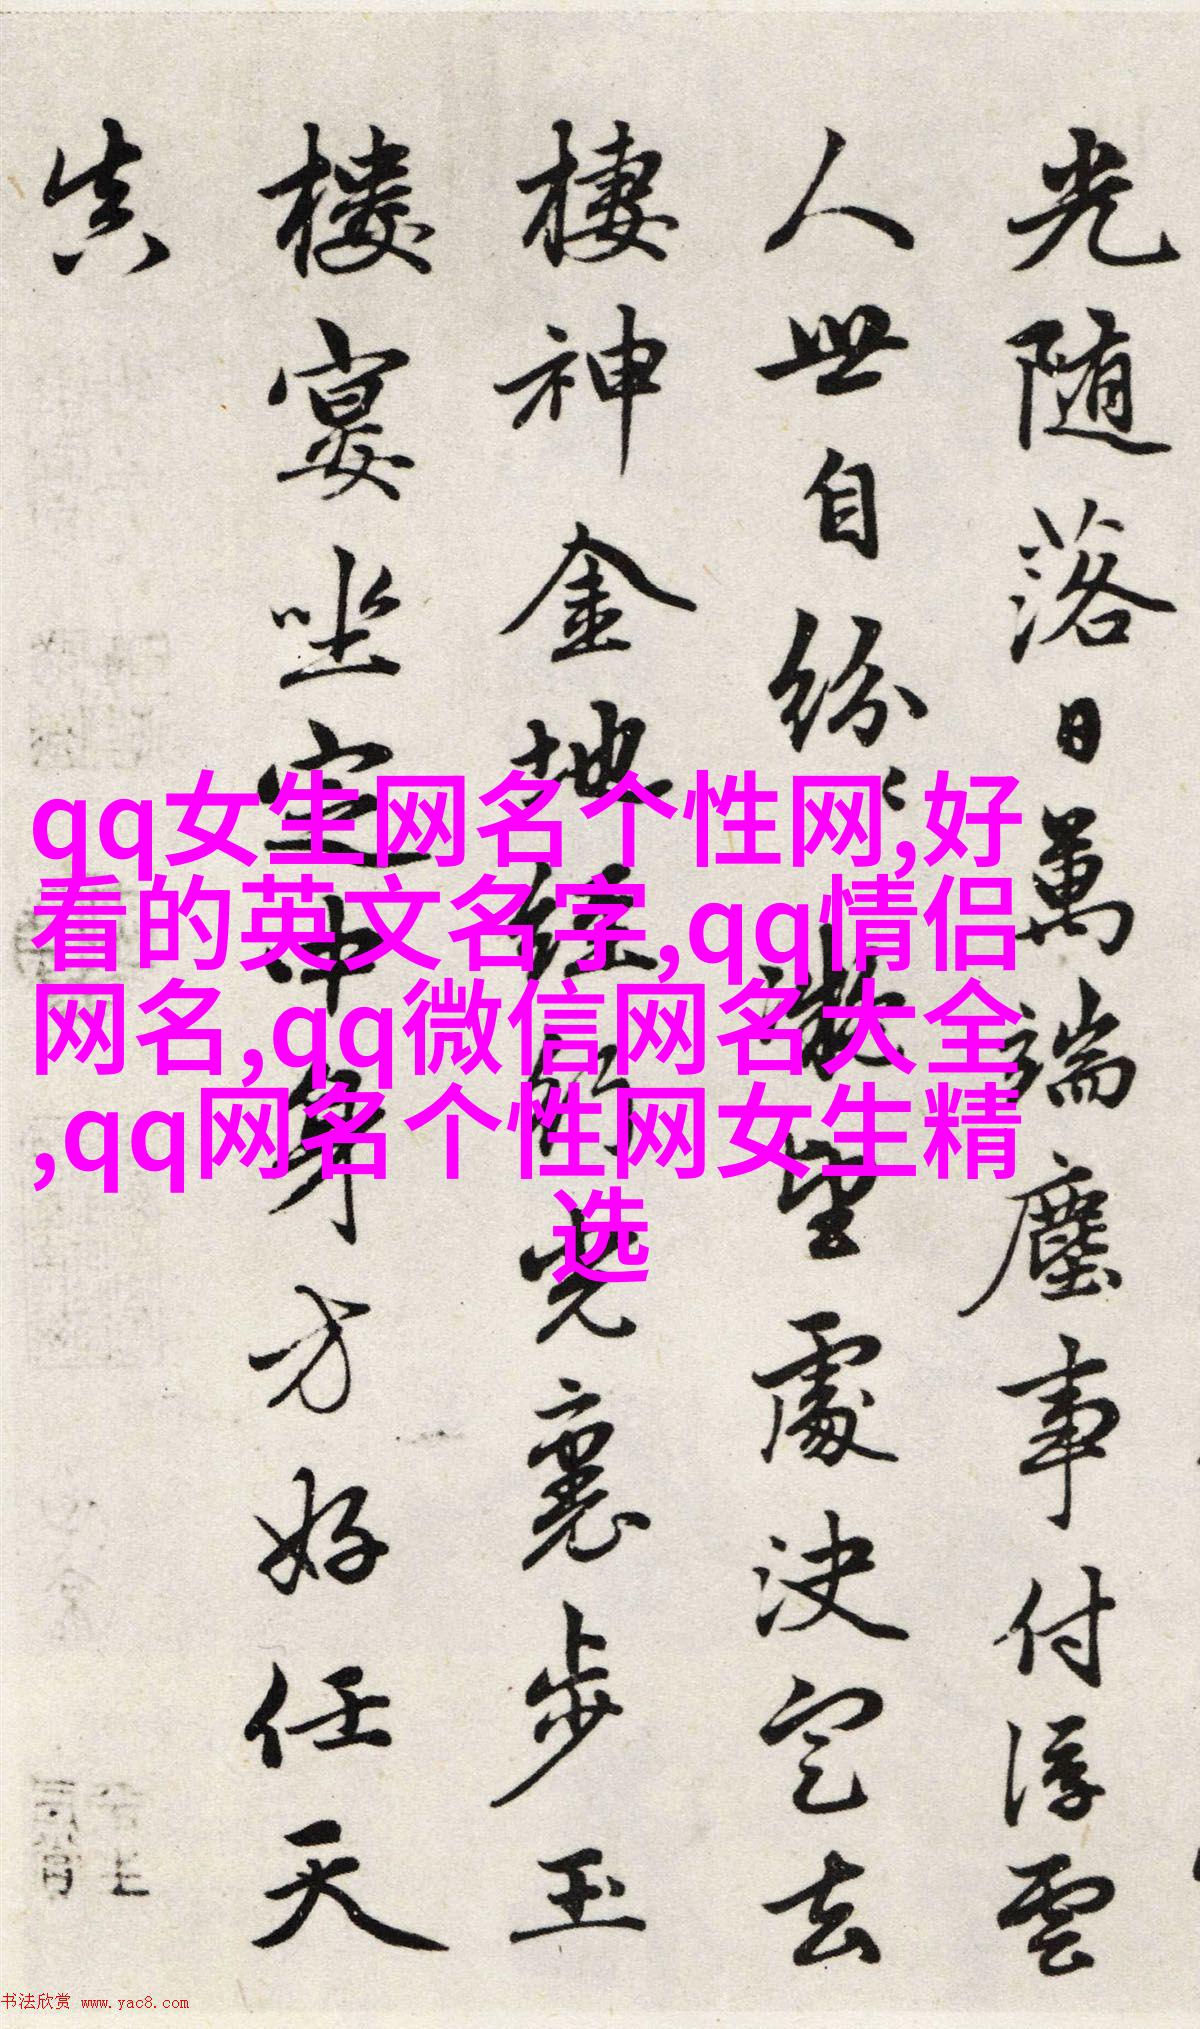 光随落日萬端塵事付浮雲
人世自纷々凝望處决定去
棲神金地经行光裏步玉
楼宴坐定中身方好任天
真
qq女生网名个性网,好
看的英文名字,qq情侣
网名,qq微信网名大全
,qq网名个性网女生精
选
书法欣赏 www.yac8.com